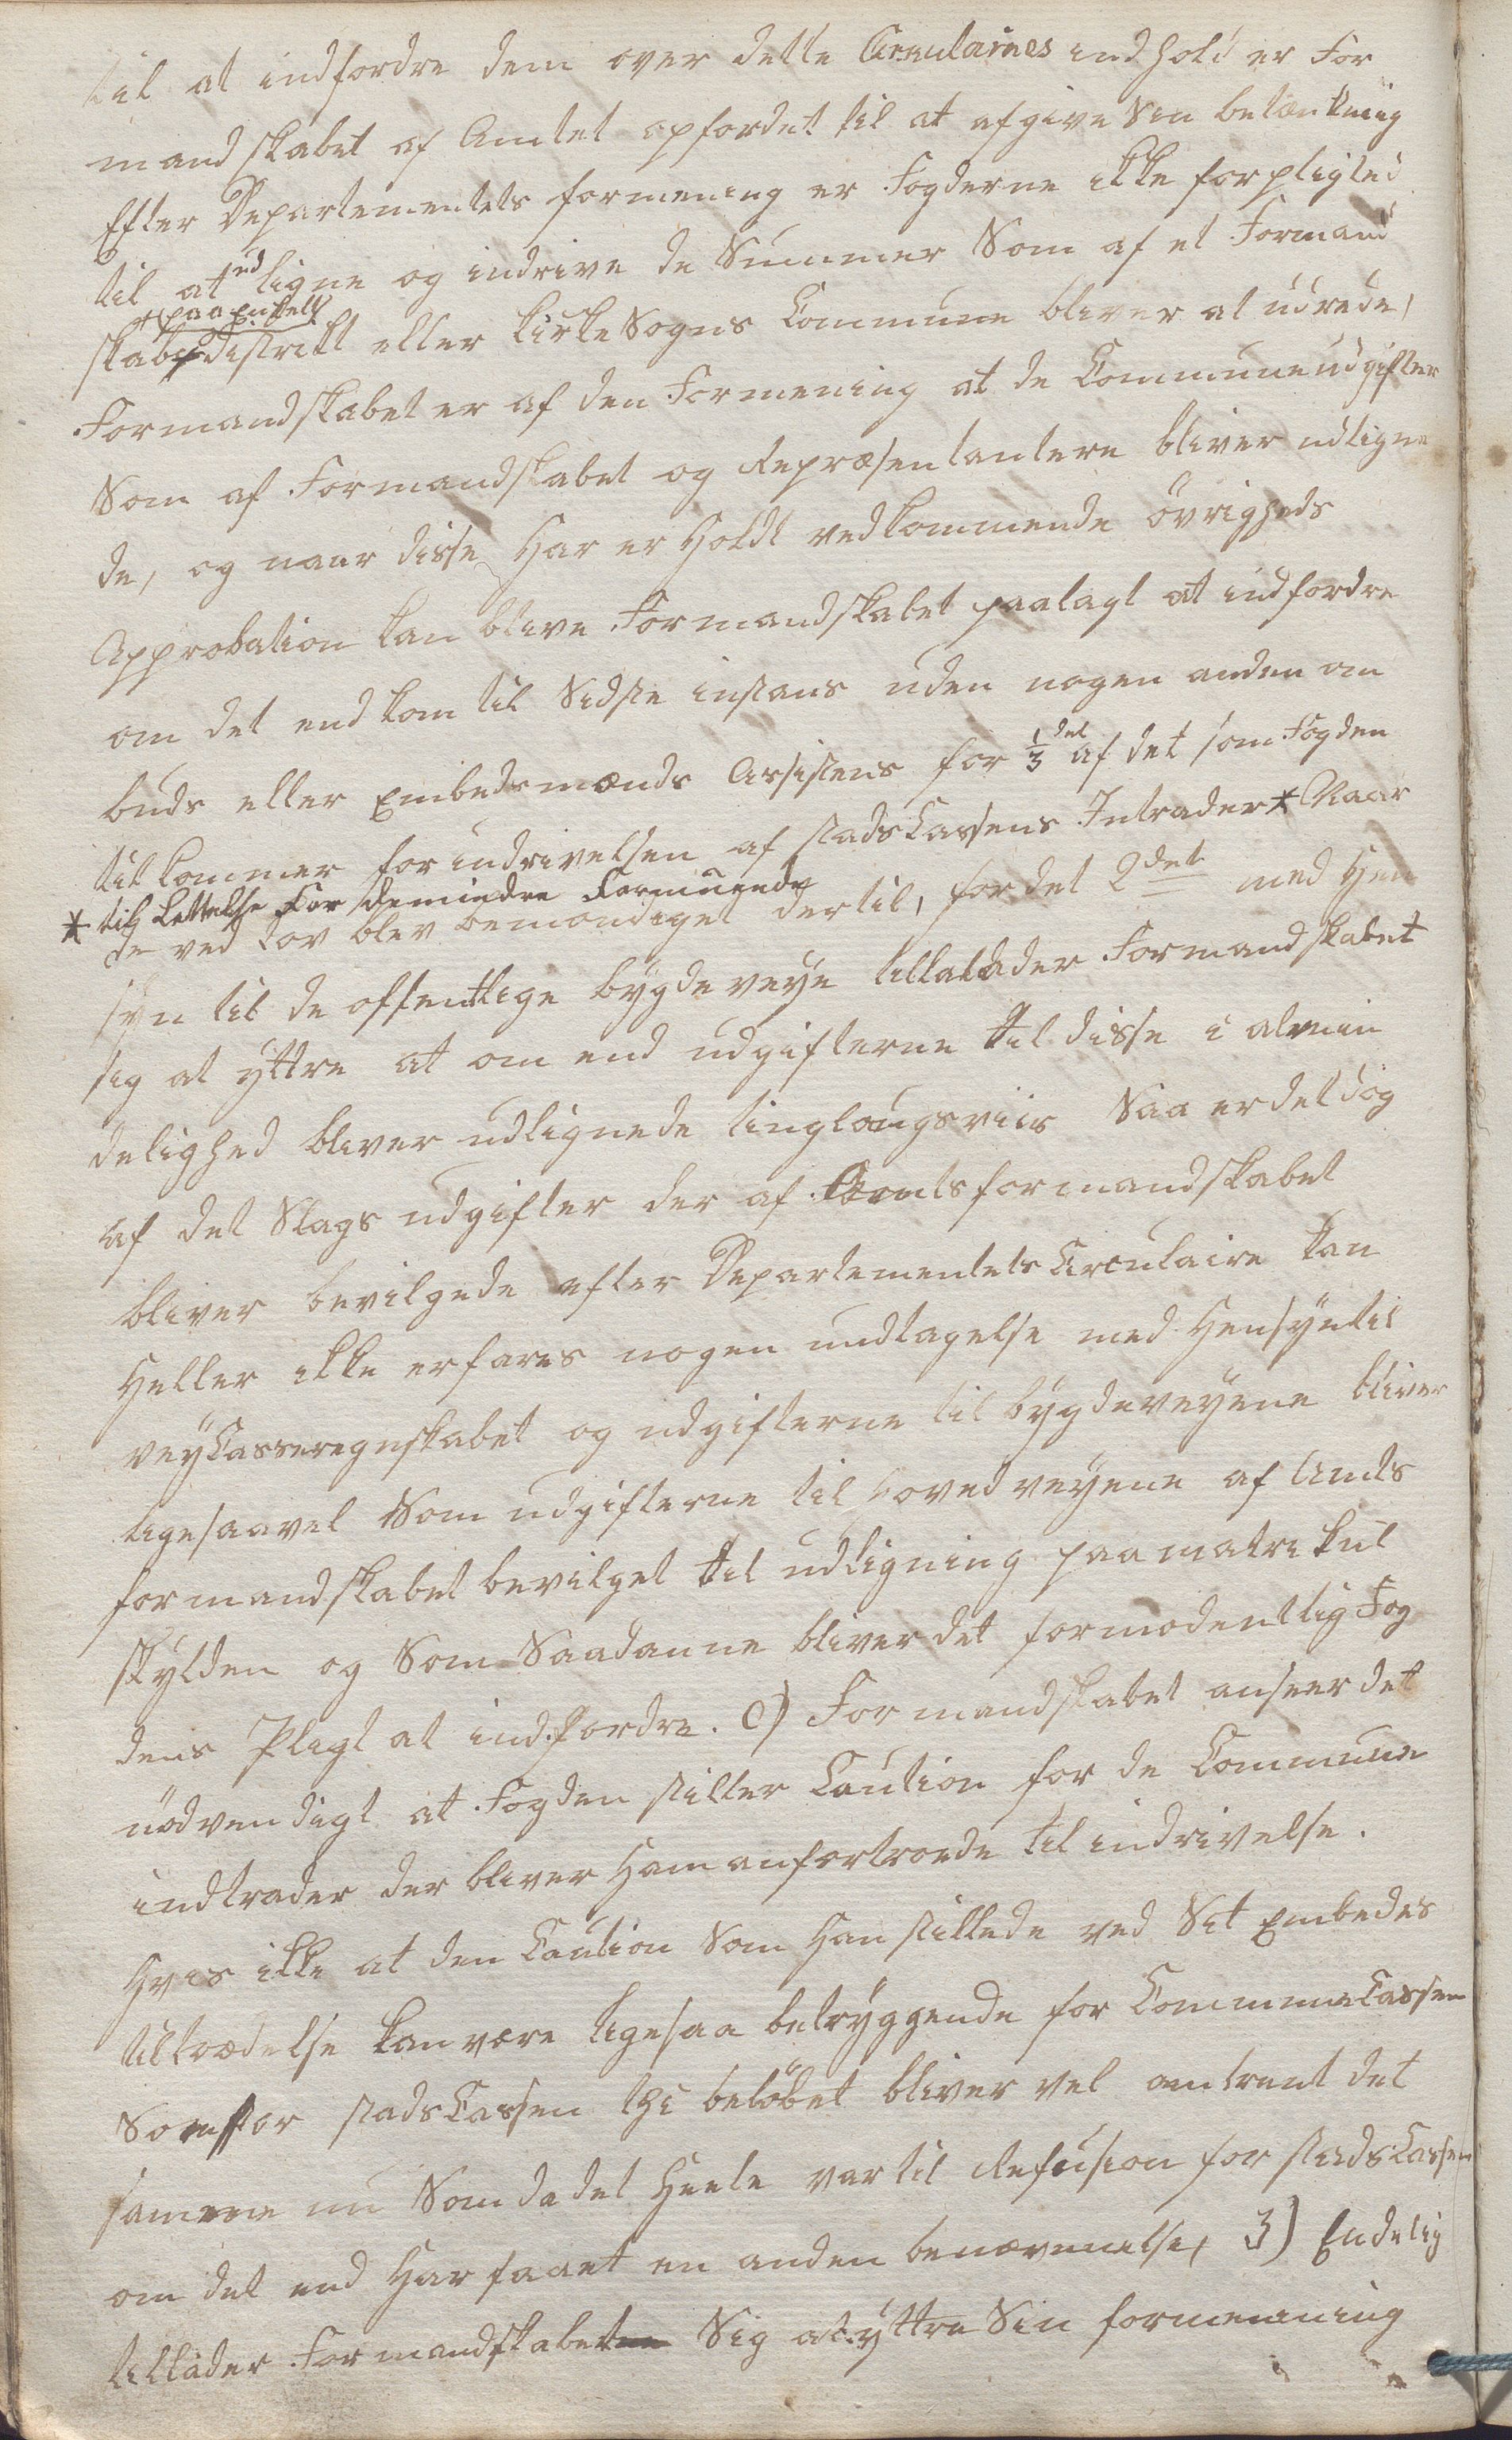 til at indfordre dem over dette Circulaires indhold er For
mandskabet af Amtet opfordet til at afgive Sin betænkning
Efter Departementets formening er Fogderne ikke forpligted
til at udligne og indrive de Summer Som af et Formand
+ paa Enkelt
skabsdistrikt eller KirkeSogns Commune bliver at udrede,
Formandskabet er af den Formening at de Communeudgifter
Som af Formandskabet og Repræsentantere bliver udligne
de, og naar disse Har er Holdt vedkommende övrigheds
Approbation kan blive Formandskabet paalagt at indfordre
om det end kom til Sidste instans uden nogen anden om
buds eller Embedsmænds Assistens for 1/3 del af det som Fogden
tilkommer for indrivelsen af stadsCassens Intrader * Naar
* til Lettelse For demindre Formuende
de ved Lov blev bemöndiget dertil, for det 2det med Hen
syn til de offentlige bygdeveye tillader Formandskabet
sig at yttre at om end udgifterne til disse i almin
delighed bliver udlignede tinglaugsviis Saa er det dog
af det Slags udgifter der af Amtsformandskabet
bliver bevilgede efter Departementets Circulaire kan
Heller ikke erfares nogen undtagelse med Hensyn til
veyCasseregnskabet og udgifterne til bygdeveyene bliver
ligesaavel Som udgifterne til Hovedveyene af Amts
formandskabet bevilget til udligning paa matrikul
skylden og Som Saadanne bliver det formodentlig Fog
dens Pligt at indfordre. c) Formandskabet anseer det
nödvendigt at Fogden stiller Caution for de Commune
indtrader der bliver Ham anfortroede til indrivelse.
Hvis ikke at den Caution Som Han stillede ved Sit Embedes
tiltrædelse kan være ligesaa betryggende for CommuneCassen
Som for stadsCassen thi belöbet bliver vel omtrent det
samme nu Som da det Heele var til Refusion for stadsCassen
om det end Har faaet en anden benævnnelse, 3) Endelig
tillader Formandskabet Sig at yttre Sin formenning